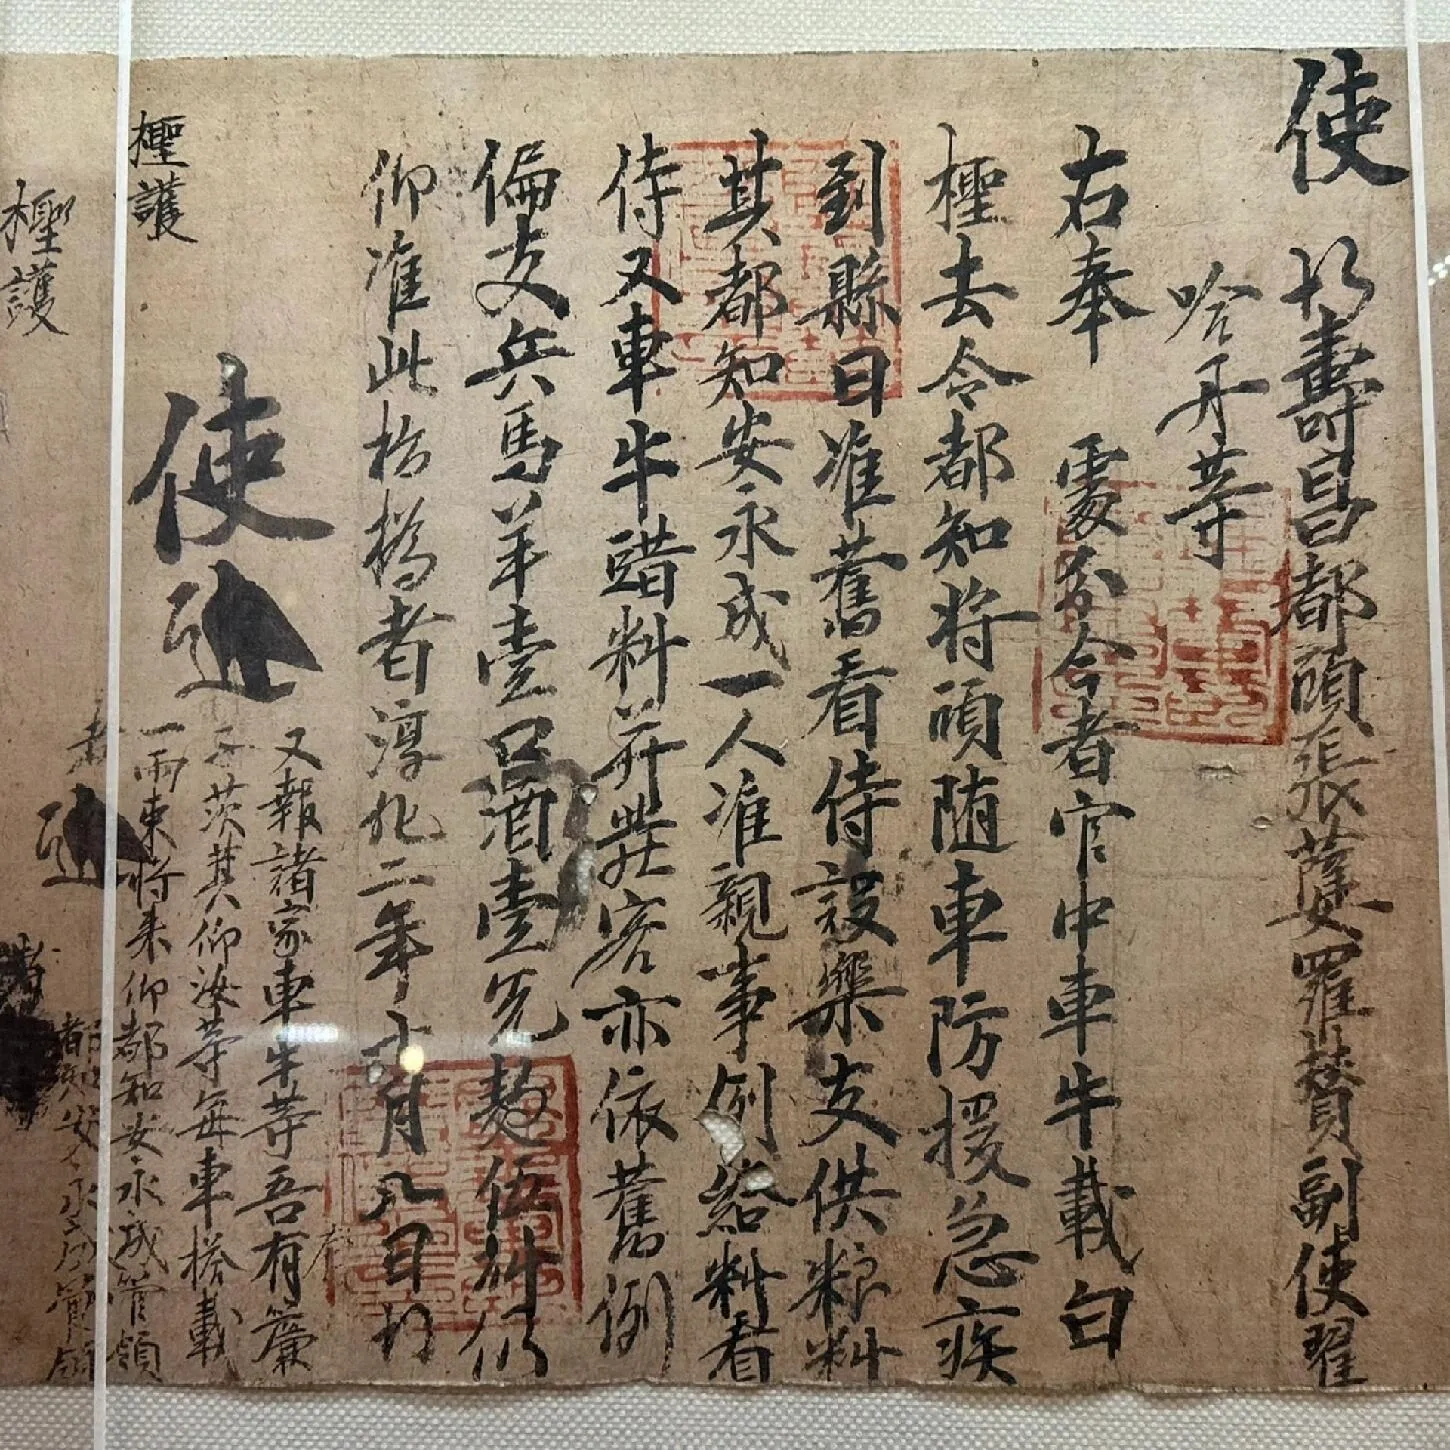 使 帖壽昌都頭張薩羅贊副使翟
哈丹等
右奉 處分今者官中車牛載白
檉去令都知將頭随車防援急疾
到縣日准舊看侍設樂支供粮料
其都知安永成一人准親事例給料看
侍又車牛䜺料并庄客亦依舊例
偏支兵馬羊壹口酒壹瓮麨伍㪷仍
仰准此指撝者淳化二年十月八日帖
使
又報諸家車牛等吾有簾
子茨萁仰汝等每車搭載
一兩束將来仰都知安永成管領
者
檉護
檉護
都知安永成管領